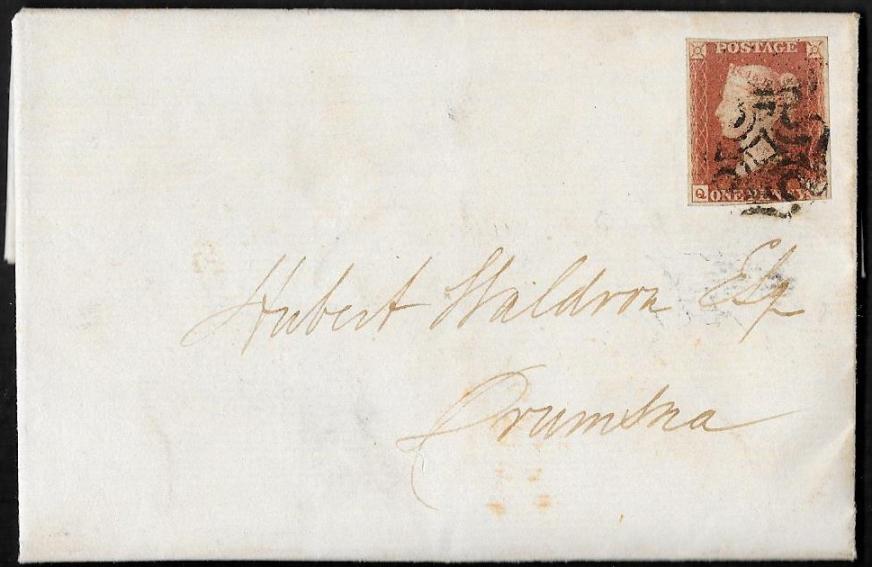 POSTAGE
Q
ONE PENNY
Hubert Waldron Esq
Drumsna